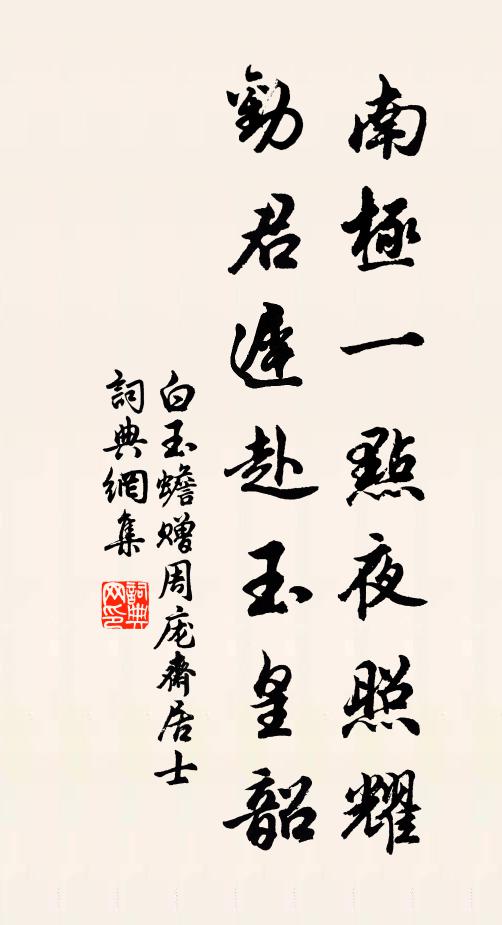 南極一點夜照耀
勸君遲赴玉皇韶
白玉蟾贈周庞齋居士
詞典網集
詞典网印